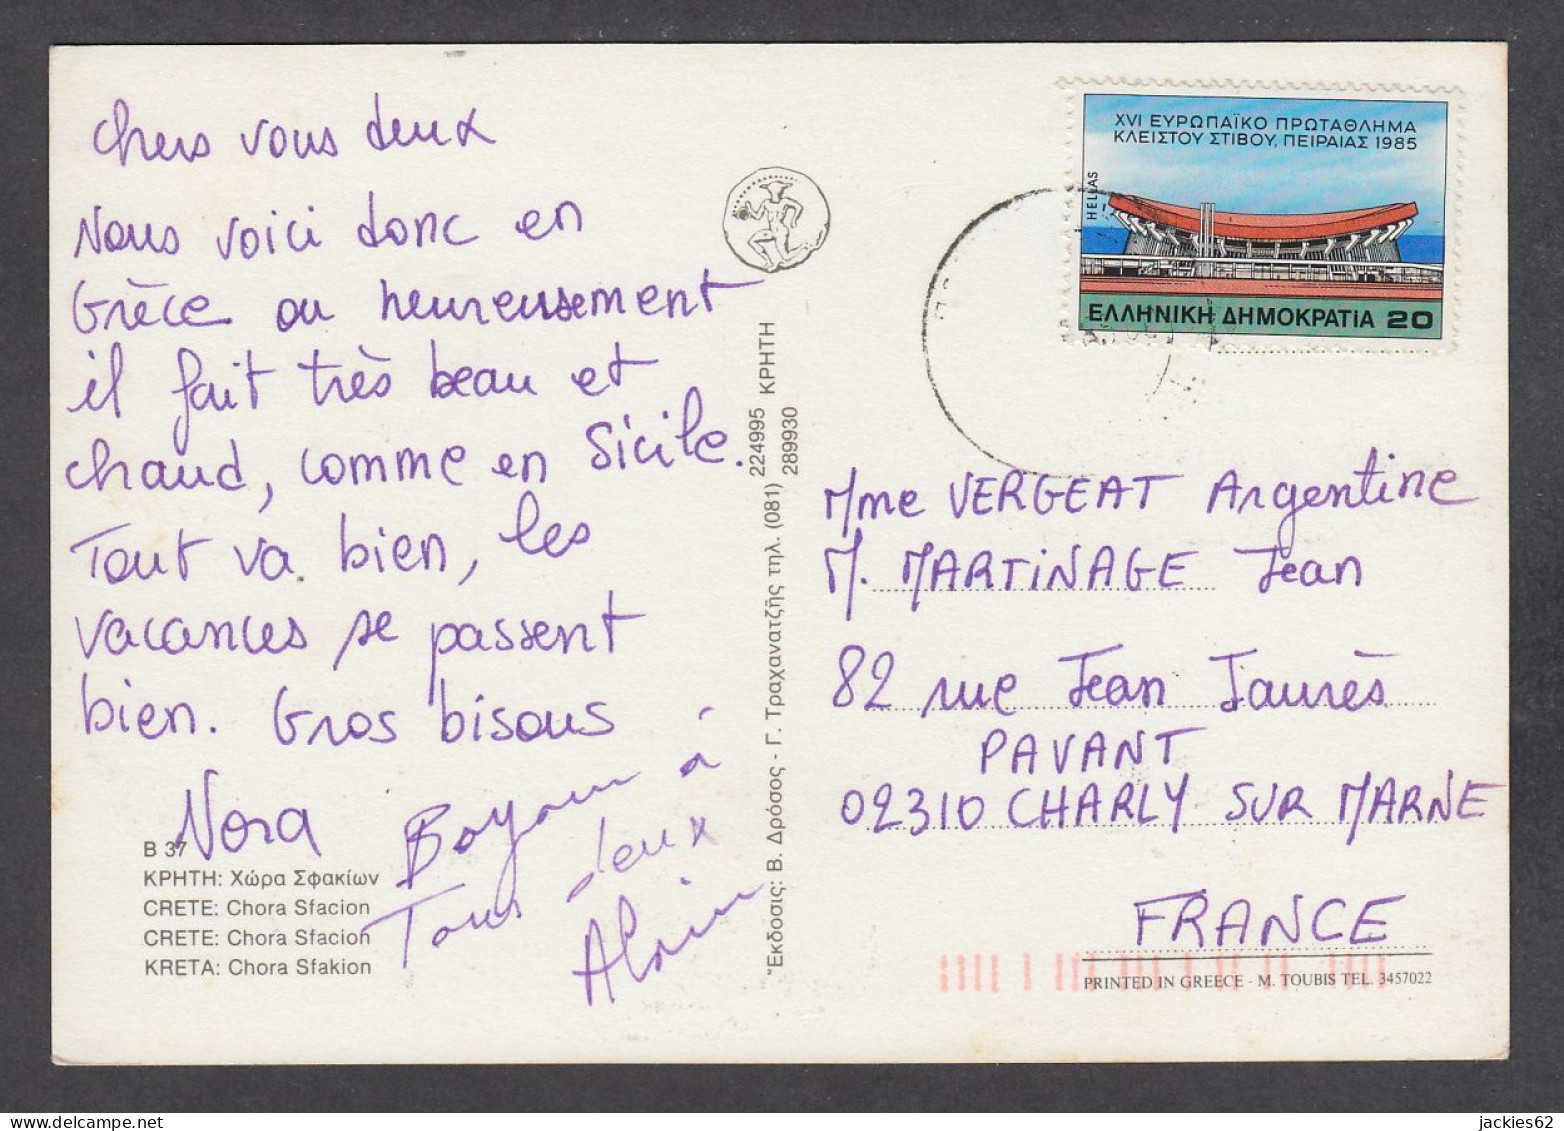 Chers vous deux
Nous voici donc en
Grèce ou heureusement
il fait très beau et
chaud, comme en Sicile.
Tout va bien, les
vacances se passent
bien. Gros bisous
Nora
à
Tous deux
Alain
B 37
ΚΡΗΤΗ: Χώρα Σφακίων
CRETE: Chora Sfacion
CRETE: Chora Sfacion
KRETA: Chora Sfakion
224995 ΚΡΗΤΗ
289930
"Εκδοσις: Β. Δρόσος - Γ. Τραχανατζῆς τηλ. (081)
XVI ΕΥΡΩΠΑΪΚΟ ΠΡΩΤΑΘΛΗΜΑ
ΚΛΕΙΣΤΟΥ ΣΤΙΒΟΥ, ΠΕΙΡΑΙΑΣ 1985
HELLAS
ΕΛΛΗΝΙΚΗ ΔΗΜΟΚΡΑΤΙΑ 20
Mme VERGEAT Argentine
M. MARTINAGE Jean
82 rue Jean Jaurès
PAVANT
02310 CHARLY SUR MARNE
FRANCE
PRINTED IN GREECE - M. TOUBIS TEL. 3457022
jackies62